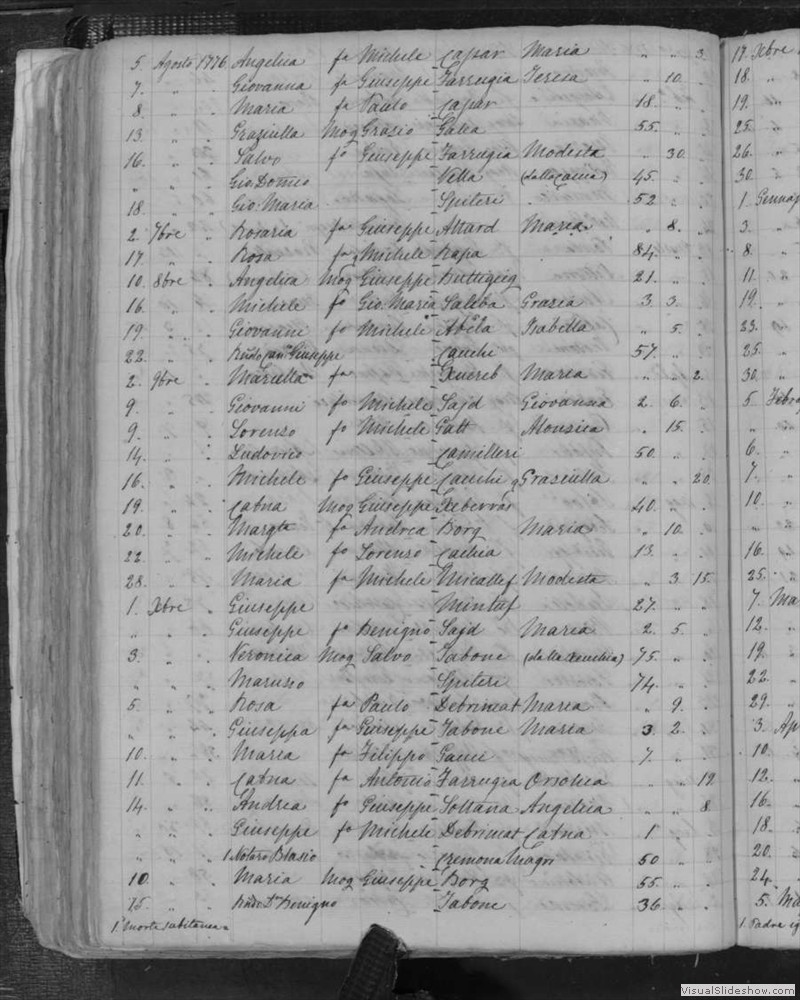 5. Agosto 1776 Angelica fa Michele Capar Maria " " 3.
7. " . Giovanna fa Giuseppe Farrugia Teresa " 10. .
8. " . Maria fa Paulo Capar 18. " .
13. " . Graziulla Mog Grasio Galea 55. " .
16. " . Salvo fo Giuseppe Farrugia Modesta " 30. .
" " . Gio: Domco Vella 45. " .
18. " . Gio: Maria Spiteri 52 " .
2. 7bre . Rosaria fa Giuseppe Attard Maria " 8. .
17. " . Rosa fa Michele Rapa 84. " .
10. 8bre . Angelica Mog Giuseppe Buttigeig 21. " .
16. " . Michele fo Gio. Maria Saliba Grazia 3. 3. .
19. " . Giovanni fo Michele Abela Isabella " 5. .
22. " . Giuseppe Cauchi 57. " .
2. 9bre . Mariella fa Xuereb Maria " " 2.
9. " . Giovanni fo Michele Sajd Giovanna 2. 6. .
9. " . Lorenso fo Michele Gatt Alousica " 15. .
14. " . Ludovico Camilleri 50. " .
16. " . Michele fo Giuseppe Cauchi Graziulla " " 20.
19. " . Catna Mog Giuseppe Xeberras 40. " .
20. " . Margta fa Andrea Borg Maria " 10. .
22. " . Michele fo Lorenso Cachia 13. " .
28. " . Maria fa Michele Micallef Modesta " 3. 15.
1. Xbre . Giuseppe Mintuf 27. " .
" " . Giuseppe fo Benigno Sajd Maria 2. 5. .
3. " . Veronica Mog Salvo Tabone 75. " .
" " . Marusso Spiteri 74. " .
5. " . Rosa fa Paulo Debrimat Maria " 9. .
" " . Giuseppa fa Giuseppe Tabone Maria 3. 2. .
10. " . Maria fa Filippo Gauci 7. " .
11. " . Catna fa Antonio Farrugia Orsolica " " 19.
14. " . Andrea fo Giuseppe Soltana Angelica " " 8.
" " . Giuseppe fo Michele Debrimat Catna 1 " .
" " 1. Notaro Blasio Cremona Magri 50 " .
10. " . Maria Mog Giuseppe Borg 55. " .
15. " . Benigno Tabone 36. " .
1. Morte subitanea
17. Xbre
18. "
19. "
25. "
26. "
30. "
1. Gennaj
3. "
8. "
11. "
19. "
23. "
25. "
30. "
5. Febro
" "
6. "
7. "
10. "
" "
16. "
25. "
7. Ma
12. "
19. "
22. "
29. "
3. Ap
10. "
12. "
16. "
18. "
20. "
24. "
5.
1. Padre
VisualSlideshow.com